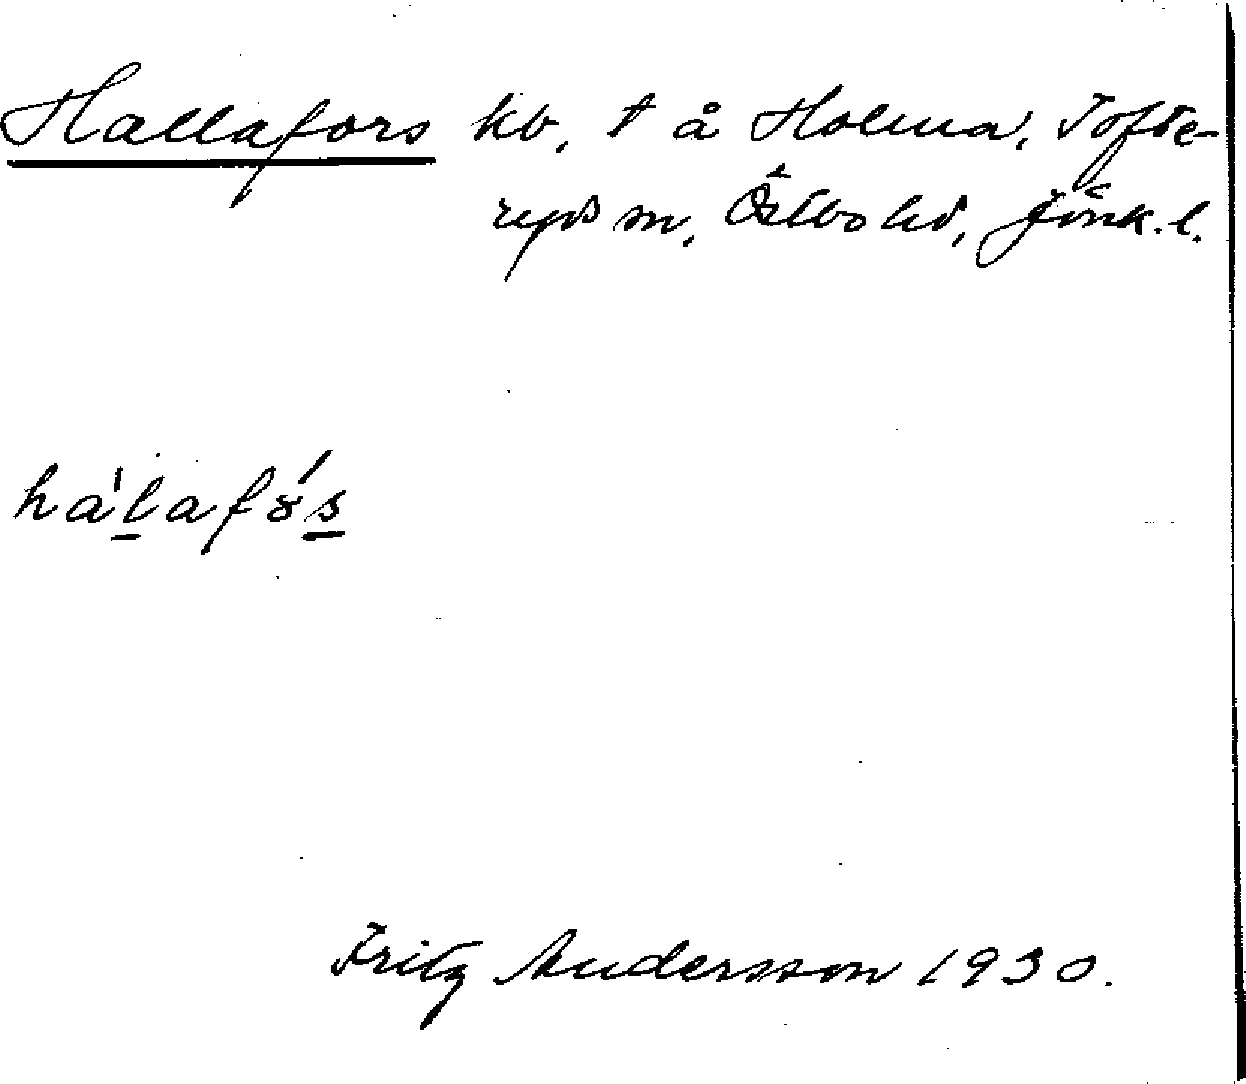 Hallafors kv, t å Holma, Tofte-
ryds sn, Östbo hd, Jönk. l.
ha'lafó's
Fritz Andersson 1930.